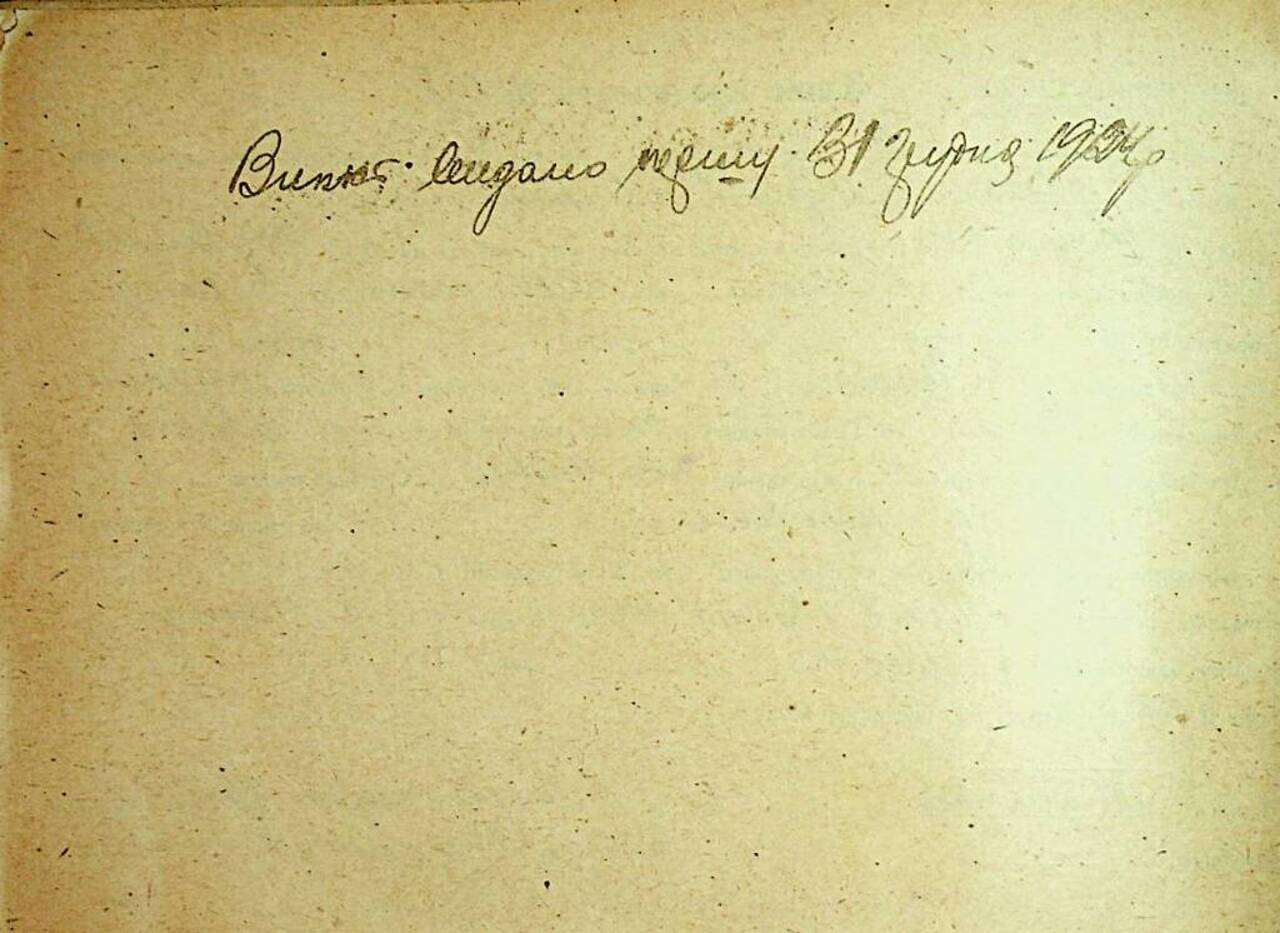 видано першу 31 грудня 1924 р